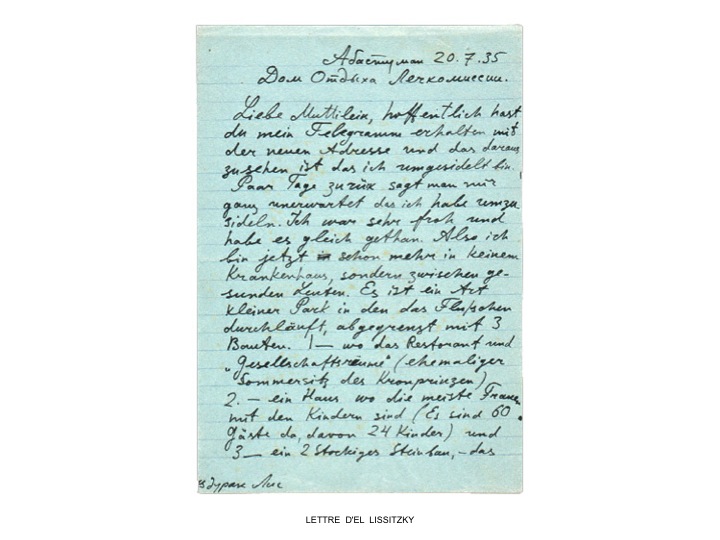 Абастуман 20.7.35
Дом Отдыха Лечкомиссии.
Liebe Muttilein, hoffentlich hast
du mein Telegramm erhalten mit
der neuen Adresse und das daraus
zu sehen ist das ich umgesidelt bin.
Paar Tage zurük sagt man mir
ganz unerwartet das ich habe umzu
sideln. Ich war sehr froh und
habe es gleich gethan. Also ich
bin jetzt schon mehr in keinem
Krankenhaus, sondern zwischen ge-
sunden Leuten. Es ist ein Art
kleiner Park in den das Flüßchen
durchläuft, abgegrenzt mit 3
Bauten. 1— wo das Restorant und
„Gesellschaftsreume" (ehemaliger
Sommersitz des Kronprinzen)
2. — ein Haus wo die meiste Frauen
mit den Kindern sind (Es sind 60
Gäste da, davon 24 Kinder) und
3— ein 2 Stockiges Steinbau, — das
Лис
LETTRE D'EL LISSITZKY